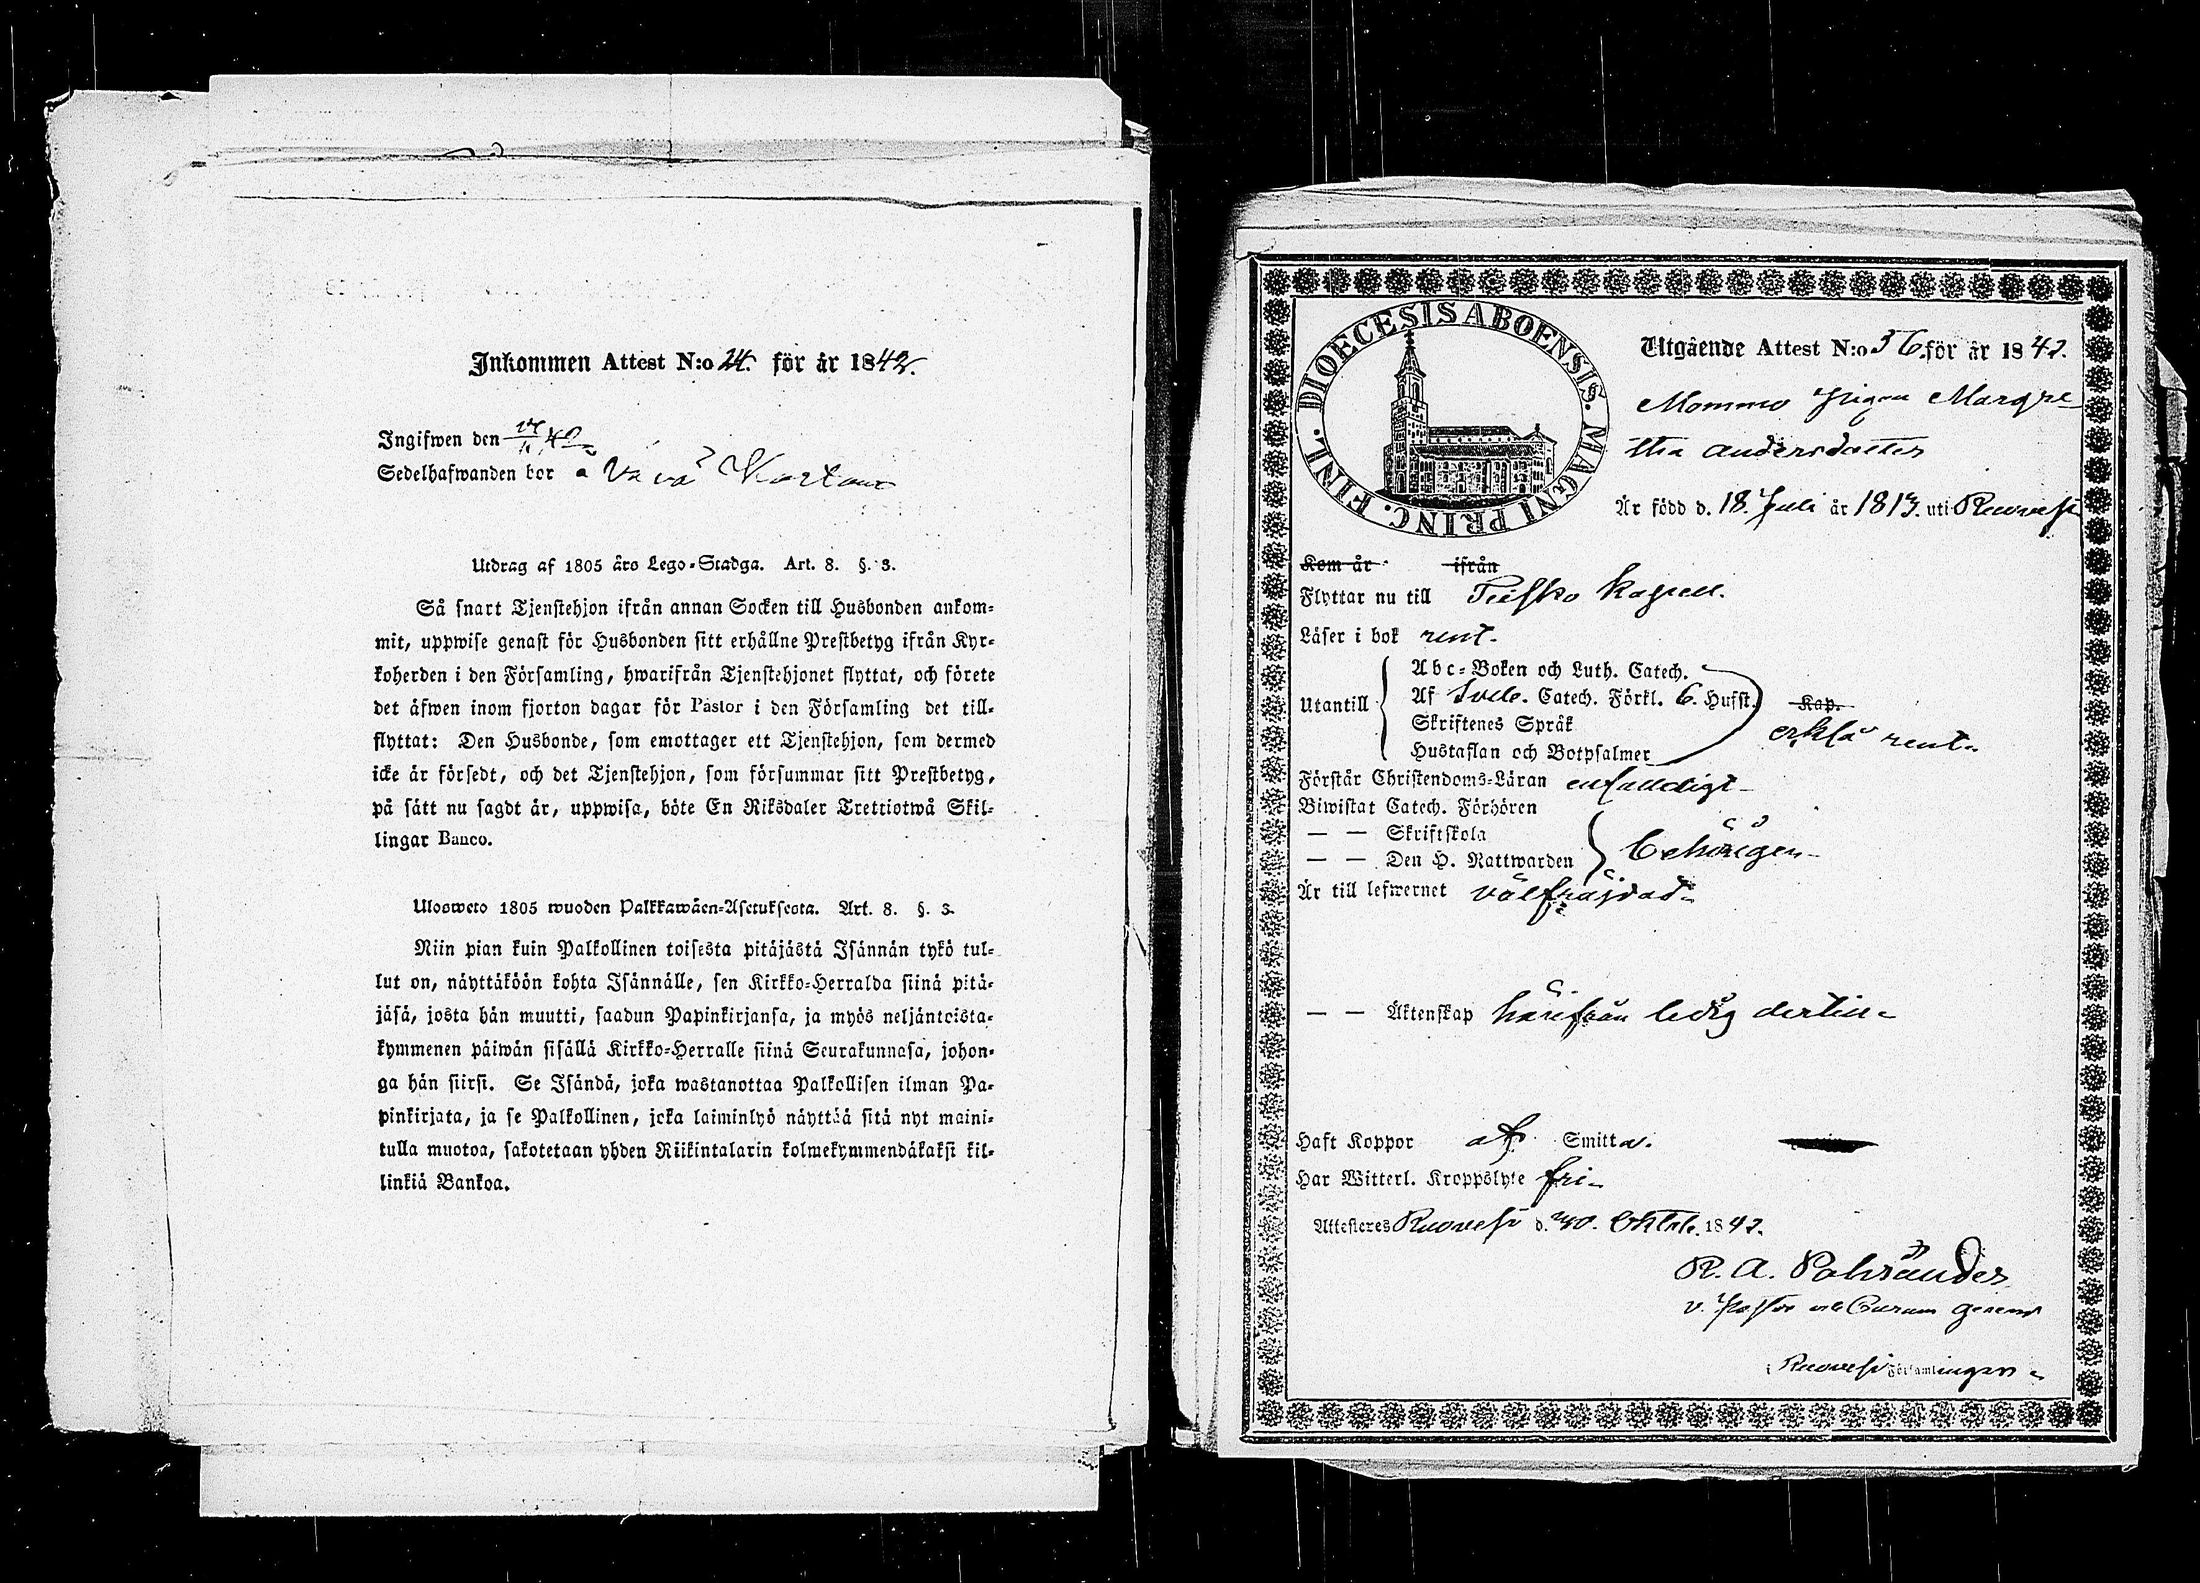 Inkommen Attest N:o 24. för år 1842.
Ingifwen den 14/11 42
Sedelhafwanden bor
Utdrag af 1805 års Lego-Stadga. Art. 8. §. 3.
Så snart Tjenstehjon ifrån annan Socken till Husbonden ankom-
mit, uppwise genast för Husbonden sitt erhållne Prestbetyg ifrån Kyr-
koherden i den Församling, hwarifrån Tjenstehjonet flyttat, och förete
det äfwen inom fjorton dagar för Pastor i den Församling det till-
flyttat: Den Husbonde, som emottager ett Tjenstehjon, som dermed
icke är försedt, och det Tjenstehjon, som försummar sitt Prestbetyg,
på sätt nu sagdt är, uppwisa, böte En Riksdaler Trettiotwå Skil-
lingar Banco.
Ulosweto 1805 wuoden Palkkawäen-Asetuksesta. Art. 8. §. 3.
Niin pian kuin Palkollinen toisesta pitäjästä Isännän tykö tul-
lut on, näyttäköön kohta Isännälle, sen Kirkko-Herralda siinä pitä-
jäsä, josta hän muutti, saadun Papinkirjansa, ja myös neljäntoista-
kymmenen päiwän sisällä Kirkko-Herralle siinä Seurakunnasa, johon-
ga hän siirsi. Se Isändä, joka wastanottaa Palkollisen ilman Pa-
pinkirjata, ja se Palkollinen, joka laiminlyö näyttää sitä nyt maini-
tulla muotoa, sakotetaan yhden Riikintalarin kolmekymmendäkaksi kil-
linkiä Bankoa.
DIOECESIS ABOENSIS. MAGNI PRINC. FINL.
Utgående Attest N:o 56. för år 1842.
Mommo Pigan Margre-
tha Andersdotter
Är född d. 18 Juli år 1813. uti Ruovesi
Kom år ifrån
Flyttar nu till Kapell.
Läser i bok rent.
Utantill
Abc-Boken och Luth. Catech.
Af Sveb. Catech. Förkl. 6. Hufst. Kap.
Skriftenes Språk
Hustaflan och Botpsalmer
rent.
Förstår Christendoms-Läran enfaldigt
Biwistat Catech. Förhören
— — Skriftskola
— — Den H. Nattwarden
behörigen
Är till lefwernet välfräjdad
— — Äktenskap härifrån ledig dertill
Haft Koppor af Smitta.
Har Witterl. Kroppslyte fri
Attesteres Ruovesi d. 30. Oktob. 1842.
R. A. Pohränder
v. Pastor
i Ruovesi Församlingen